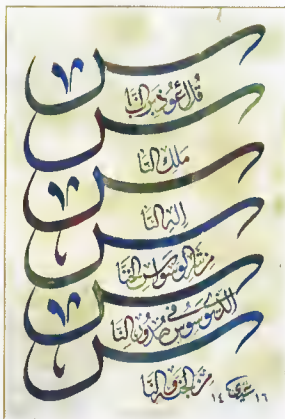 قُل أَعُوذُ بِرَبِّ النَّاس
مَلِكِ النَّاس
إِلَهِ النَّاس
مِن شَرِّ الوَسْوَاسِ الخَنَّاس
الَّذِي يُوَسْوِسُ فِي صُدُورِ النَّاس
مِنَ الجِنَّةِ وَالنَّاس
١٤١٦